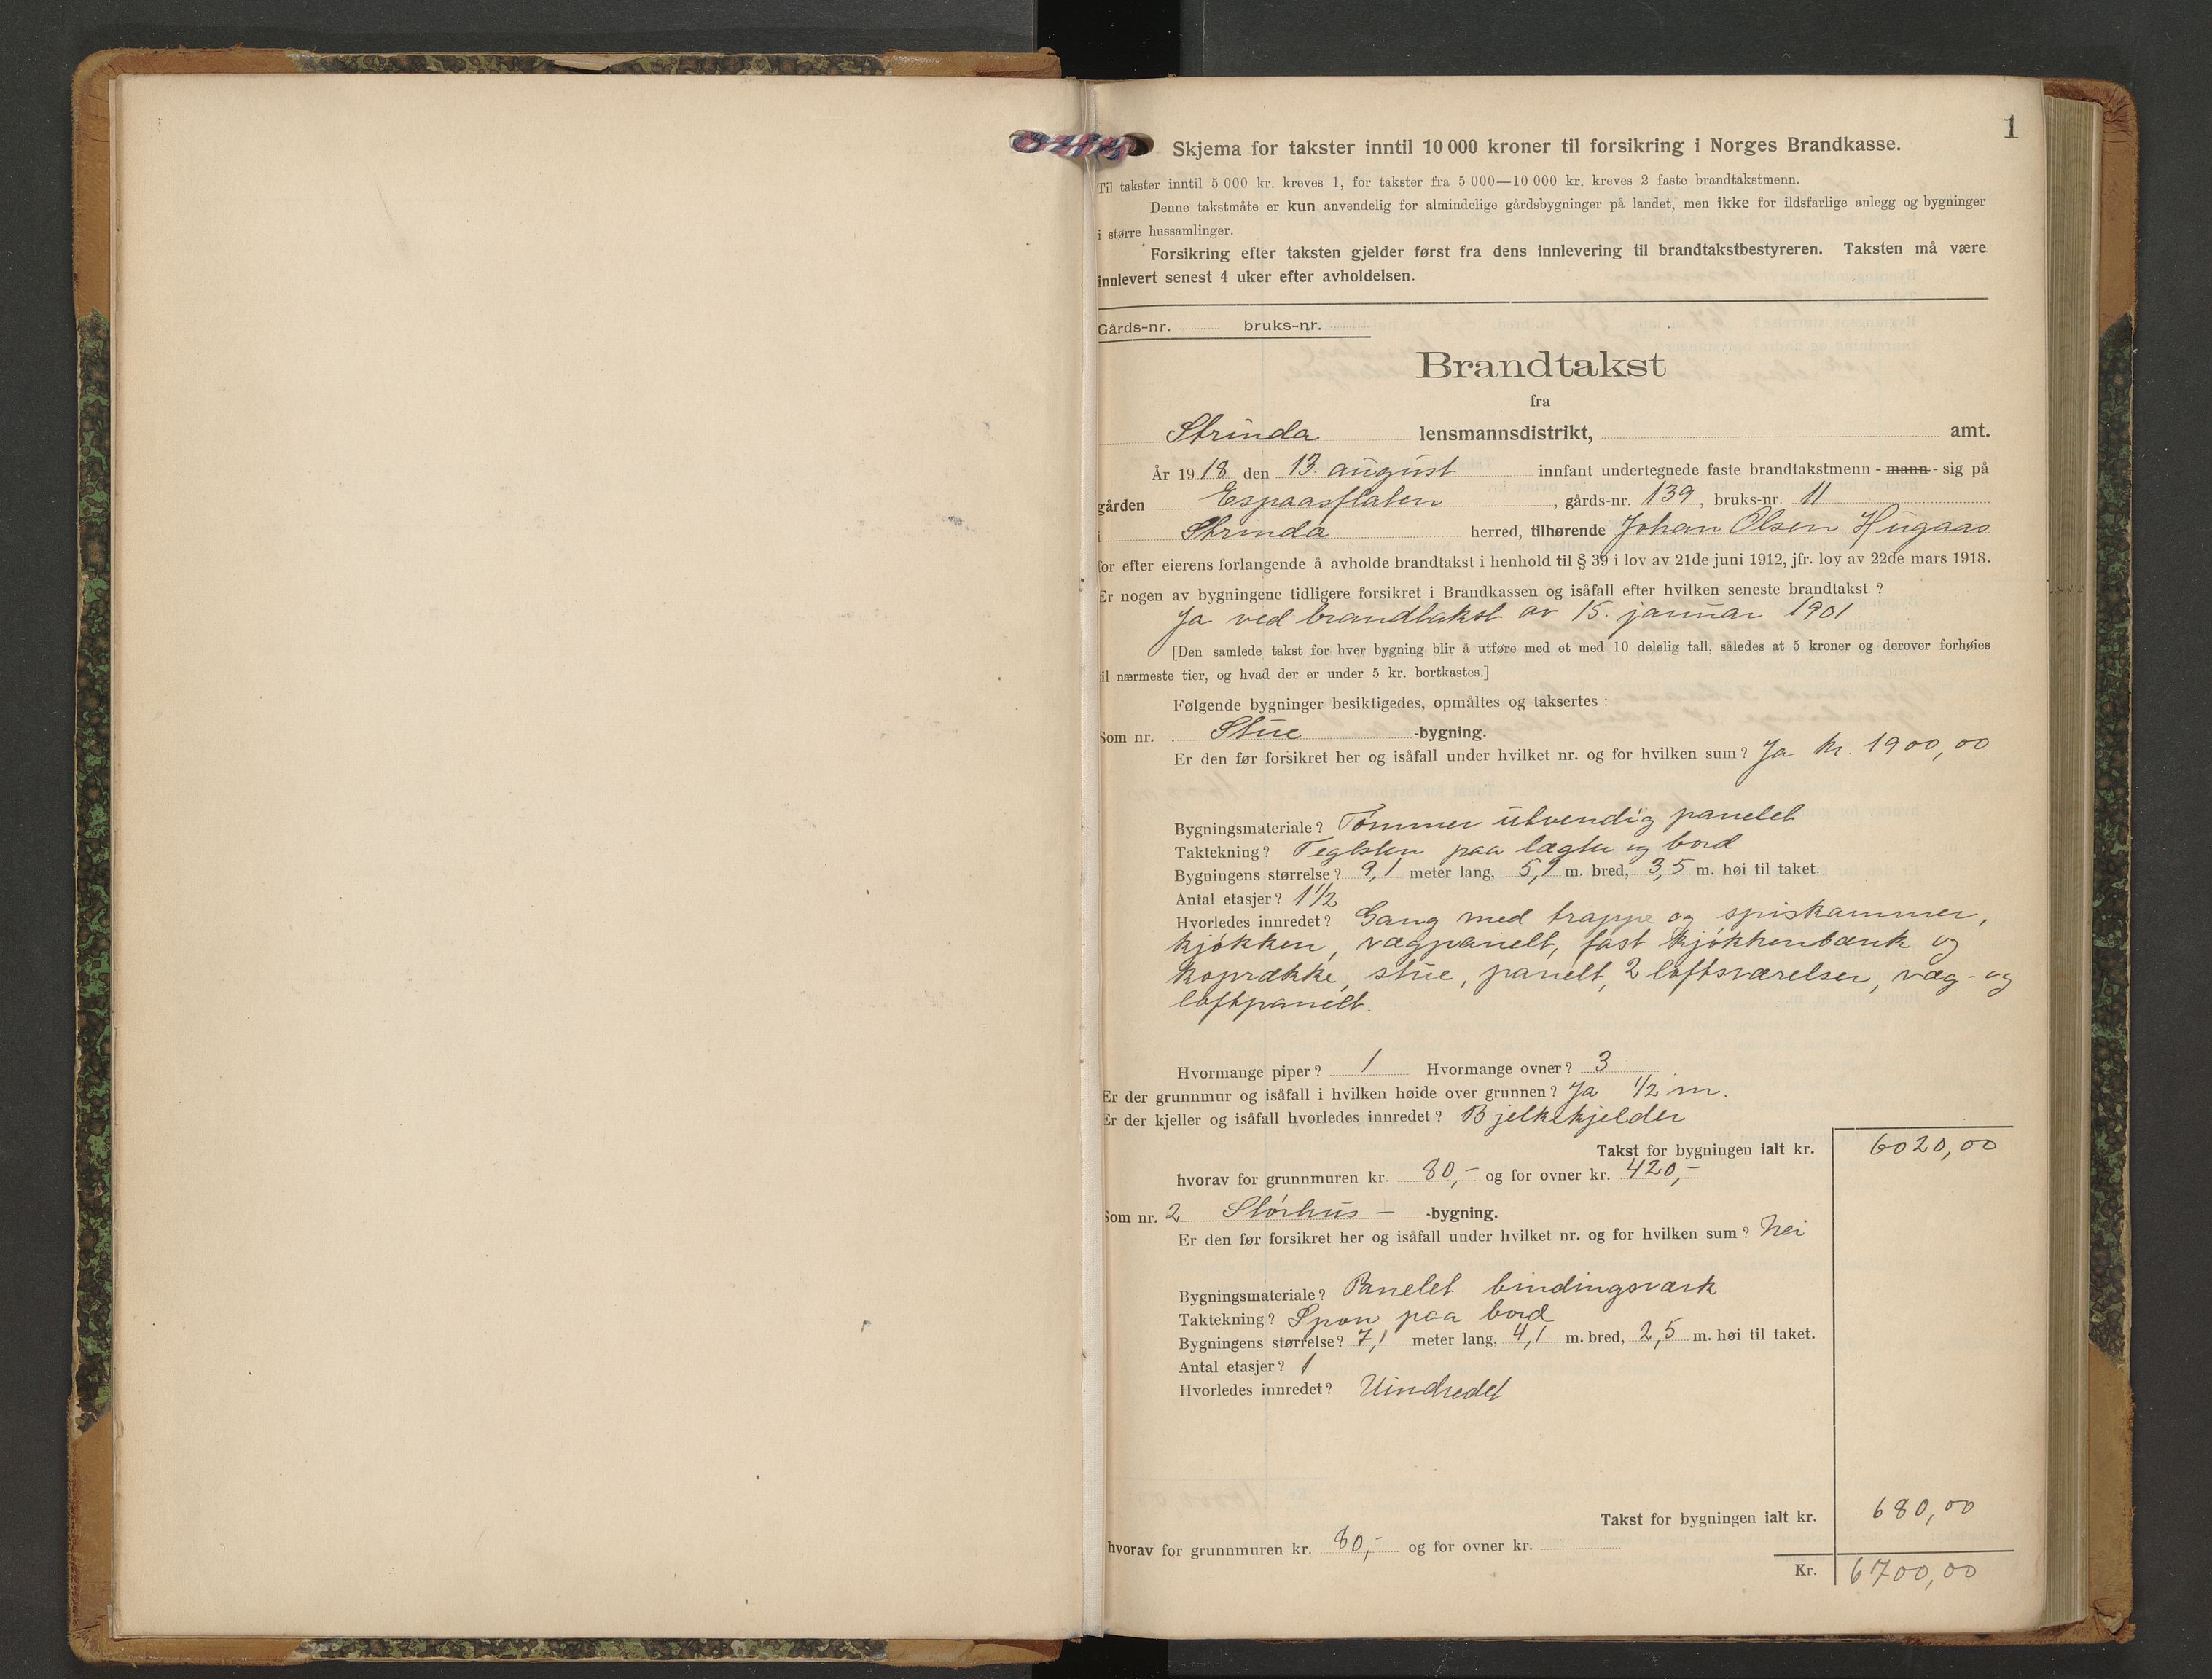 1
Skjema for takster inntil 10 000 kroner til forsikring i Norges Brandkasse.
Til takster inntil 5 000 kr. kreves 1, for takster fra 5 000—10 000 kr. kreves 2 faste brandtakstmenn.
Denne takstmåte er kun anvendelig for almindelige gårdsbygninger på landet, men ikke for ildsfarlige anlegg og bygninger
i større hussamlinger.
Forsikring efter taksten gjelder først fra dens innlevering til brandtakstbestyreren. Taksten må være
innlevert senest 4 uker efter avholdelsen.
Gårds-nr. bruks-nr.
Brandtakst
fra
Strinda lensmannsdistrikt, amt.
År 1918 den 13. august innfant undertegnede faste brandtakstmenn - mann - sig på
gården Espaasflaten, gårds-nr. 139, bruks-nr. 11
i Strinda herred, tilhørende Johan Olsen Hugaas
for efter eierens forlangende å avholde brandtakst i henhold til § 39 i lov av 21de juni 1912, jfr. lov av 22de mars 1918.
Er nogen av bygningene tidligere forsikret i Brandkassen og isåfall efter hvilken seneste brandtakst ?
Ja ved brandtakst av 15. januar 1901
[Den samlede takst for hver bygning blir å utføre med et med 10 delelig tall, således at 5 kroner og derover forhøies
til nærmeste tier, og hvad der er under 5 kr. bortkastes.]
Følgende bygninger besiktigedes, opmåltes og taksertes :
Som nr. Stue -bygning.
Er den før forsikret her og isåfall under hvilket nr. og for hvilken sum ? Ja kr. 1900,00
Bygningsmateriale ? Tømmer utvendig panelet
Taktekning ? Teglsten paa lægter og bord
Bygningens størrelse ? 9,1 meter lang, 5,1 m. bred, 3,5 m. høi til taket.
Antal etasjer ? 1 1/2
Hvorledes innredet ? Gang med trappe og spiskammer,
kjøkken, vægpanelt, fast kjøkkenbænk og
koprække, stue, panelt, 2 loftsværelser, væg- og
loftpanelt.
Hvormange piper ? 1 Hvormange ovner ? 3
Er der grunnmur og isåfall i hvilken høide over grunnen ? Ja 1/2 m.
Er der kjeller og isåfall hvorledes innredet ? Bjelkekjelder
Takst for bygningen ialt kr. 6020,00
hvorav for grunnmuren kr. 80,- og for ovner kr. 420,-
Som nr. 2 Størhus - -bygning.
Er den før forsikret her og isåfall under hvilket nr. og for hvilken sum ? Nei
Bygningsmateriale ? Panelet bindingsværk
Taktekning ? Spon paa bord
Bygningens størrelse ? 7,1 meter lang, 4,1 m. bred, 2,5 m. høi til taket.
Antal etasjer ? 1
Hvorledes innredet ? Uindredet
Takst for bygningen ialt kr. 680,00
hvorav for grunnmuren kr. 80,- og for ovner kr.
Kr. 6700,00